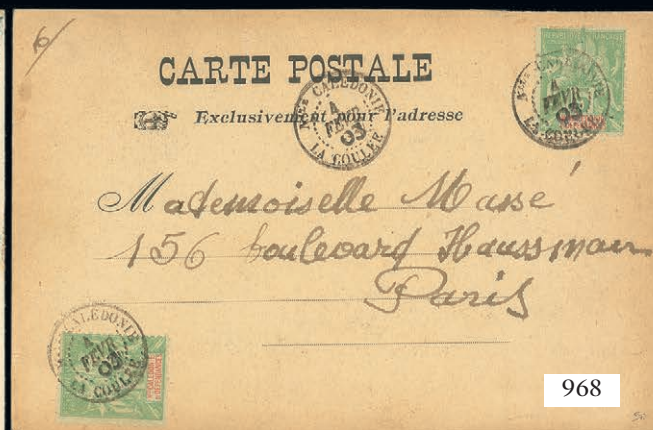 6/
CARTE POSTALE
Exclusivement pour l'adresse
Nlle CALÉDONIE
4
FEVR
03
LA COULEE
Nlle CALÉDONIE
4
FEVR
03
LA COULEE
Mademoiselle Massé
156 boulevard Haussmann
Paris
CALEDONIE
4
FEVR
03
LA COULEE
968
50